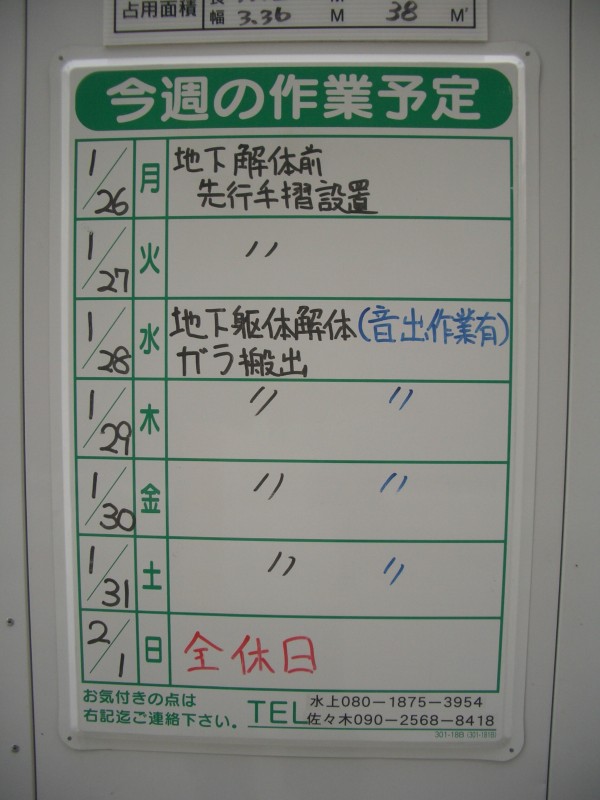 占用面積
幅 3.36 M 38 M²
今週の作業予定
1/26 月 地下解体前
先行手摺設置
1/27 火 〃
1/28 水 地下躯体解体(音出作業有)
ガラ搬出
1/29 木 〃 〃
1/30 金 〃 〃
1/31 土 〃 〃
2/1 日 全休日
お気付きの点は
右記迄ご連絡下さい。
TEL
水上080-1875-3954
佐々木090-2568-8418
301-18B (301-181B)